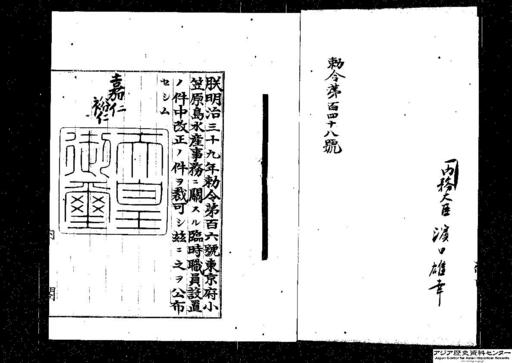 勅令第百四十八號
內務大臣 濱口雄幸
朕明治三十九年勅令第百六號東京府小
笠原島水產事務ニ關スル臨時職員設置
ノ件中改正ノ件ヲ裁可シ玆ニ之ヲ公布
セシム
嘉仁
裕仁
天皇
御璽
內 閣
アジア歴史資料センター
Japan Center for Asian Historical Records